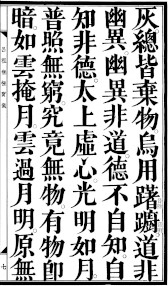 灰總皆棄物烏用躊躕道非
幽異幽異非道德不自知自
知非德太上虛心光明如月
普照無窮究竟無物有物卽
暗如雲掩月雲過月明原無
七